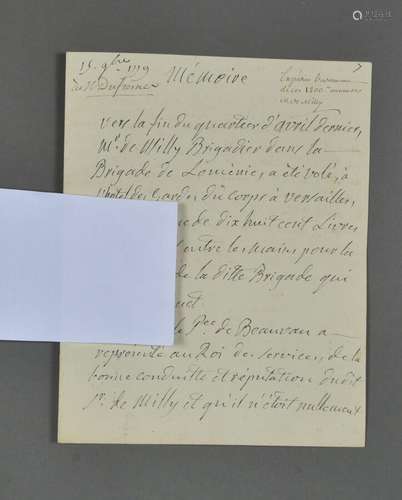 15. 9bre 1779
au Sr Dufresne
Mémoire
7
de 1800 
Mr de Milly
vers la fin du quartier d'avril dernier,
Mr. de Milly Brigadier dans la
Brigade de Lomenies, a été volé, à
l'hôtel des Gardes du corps à versailles,
de dix huit cent Livres
entre les mains pour la
de la ditte Brigade qui
le Pce de Beauvau a
représenté au Roi des services, de la
bonne conduitte et réputation dudit
Sr. de Milly et qu'il n'étoit nullement